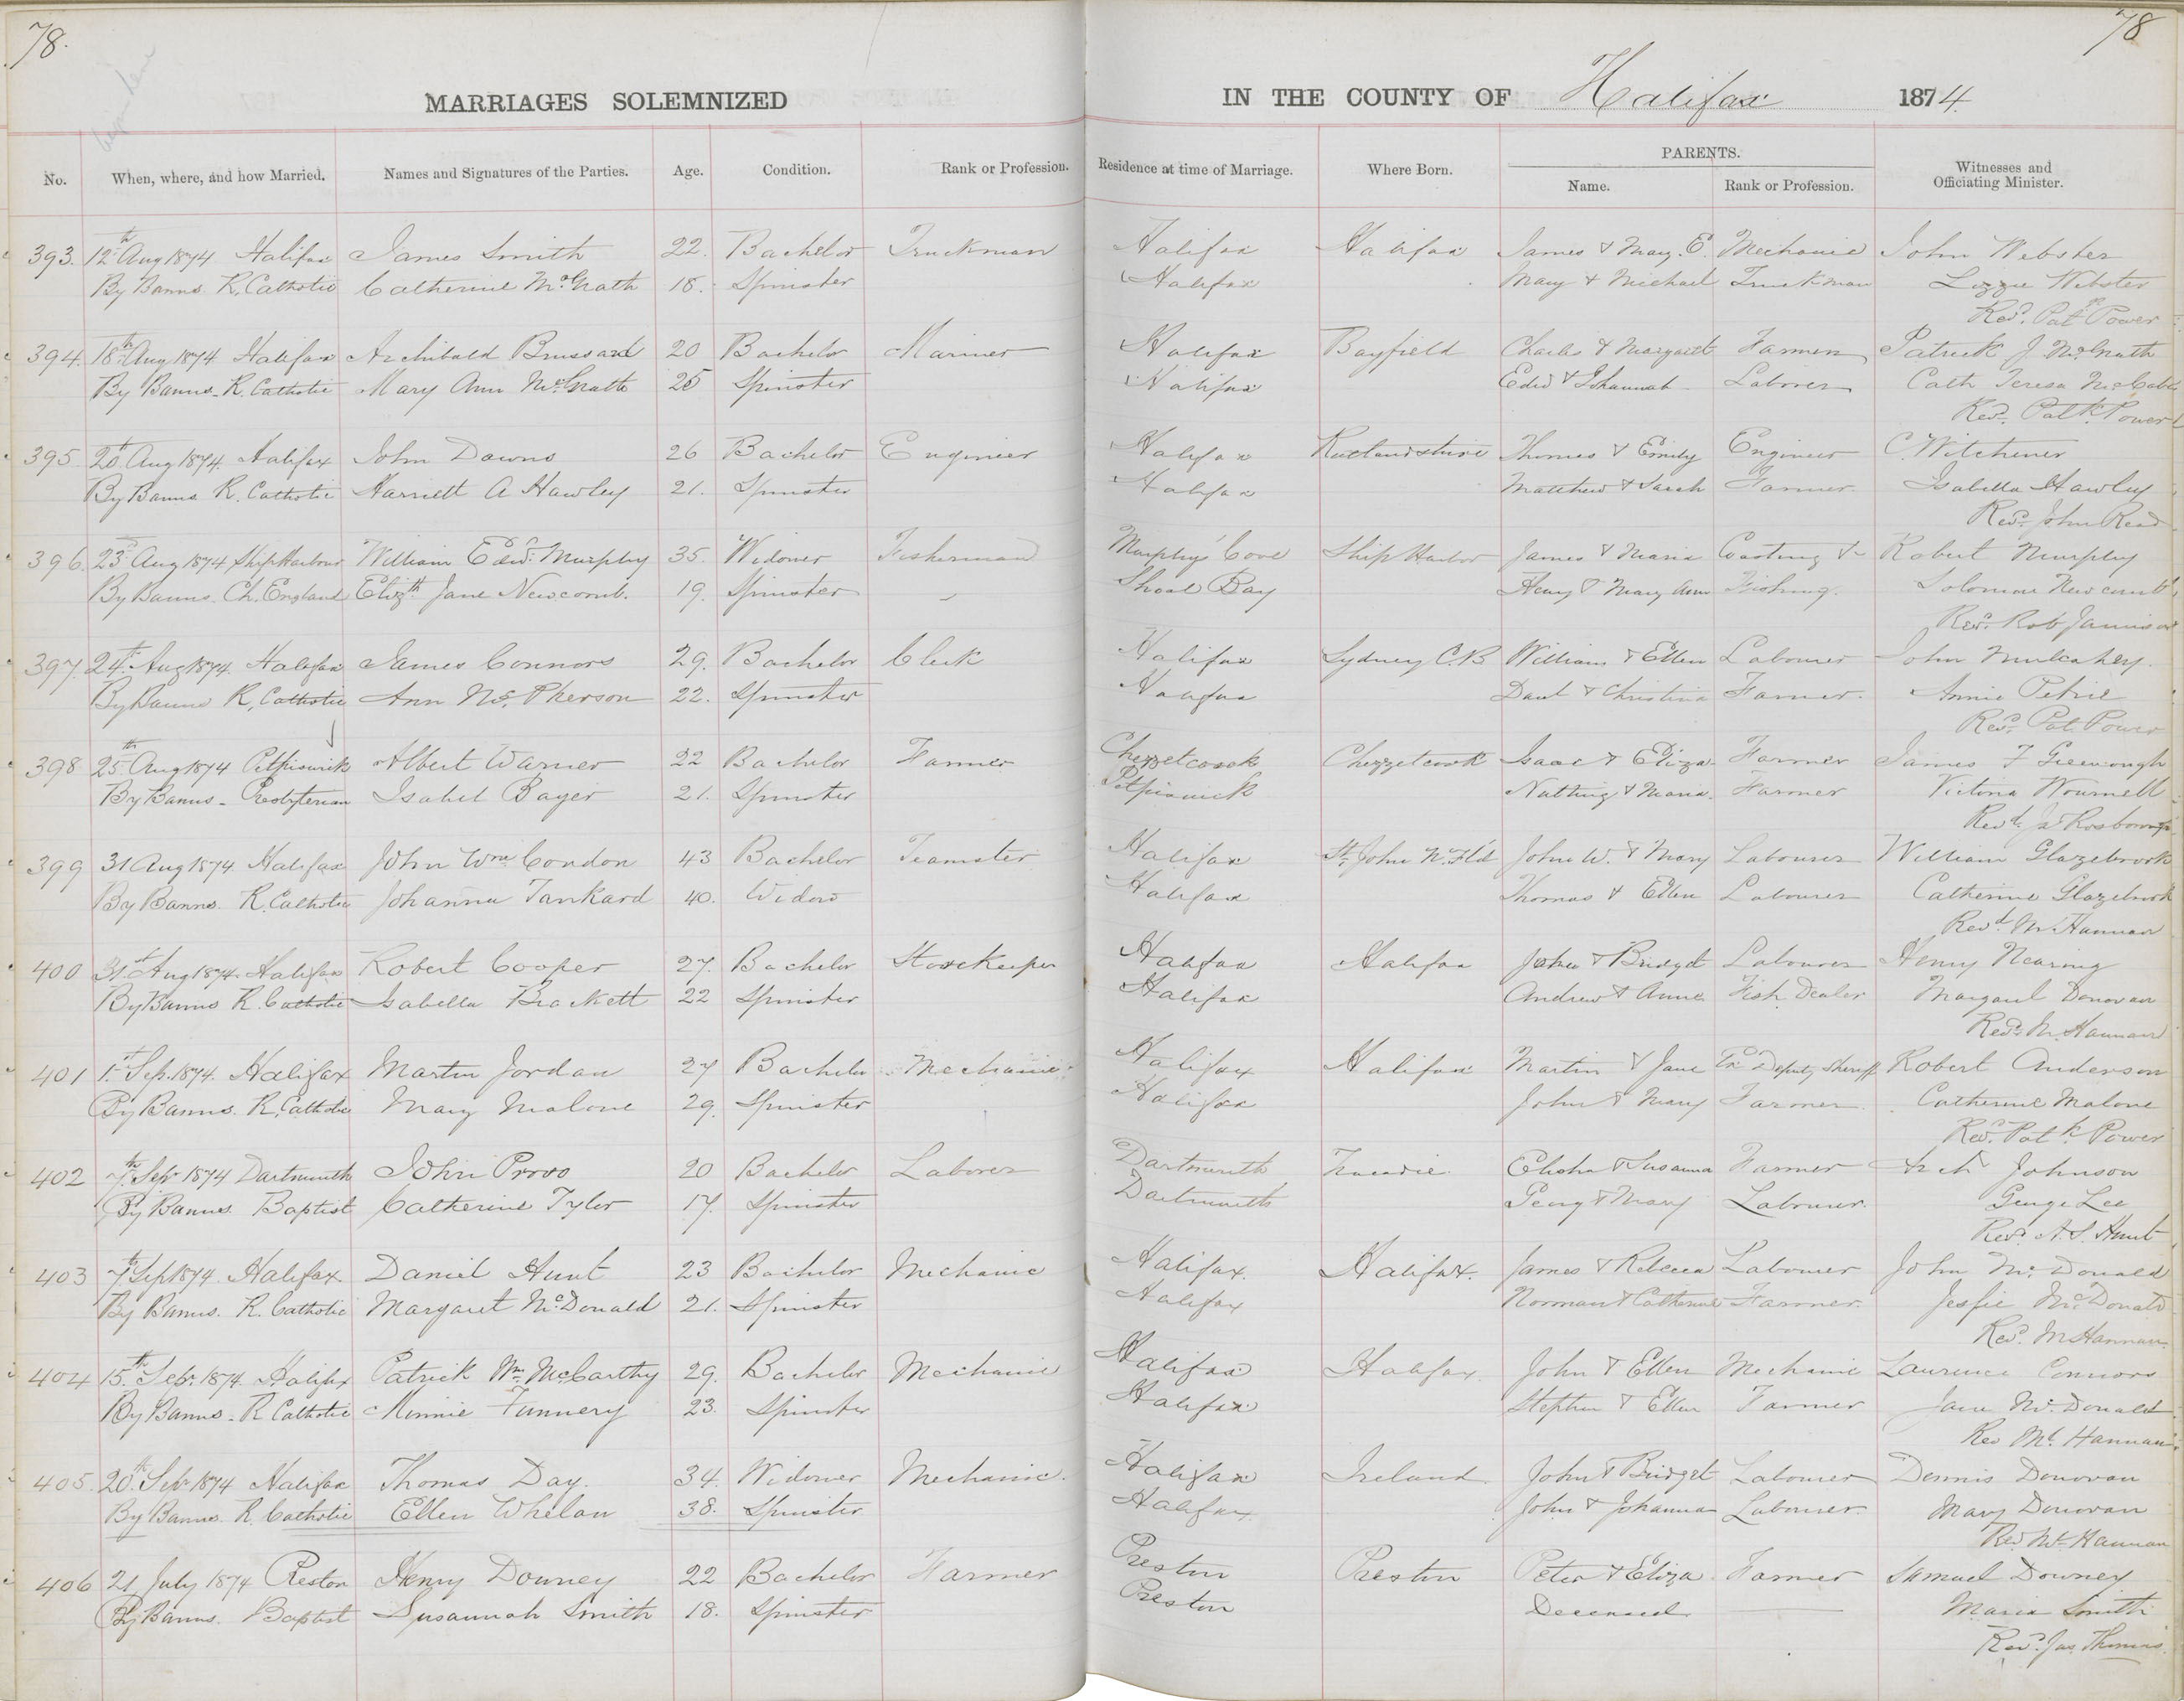 78.
78
MARRIAGES SOLEMNIZED IN THE COUNTY OF Halifax 1874.
PARENTS.
No. When, where, and how Married. Names and Signatures of the Parties. Age. Condition. Rank or Profession. Residence at time of Marriage. Where Born. Name. Rank or Profession. Witnesses and Officiating Minister.
393. 12th Aug 1874 Halifax James Smith 22. Bachelor Truckman Halifax Halifax James & Mary. E. Mechanic John Webster
By Banns R. Catholic Catherine McGrath 18. Spinster Halifax Mary & Michael Truckman Lizzie Webster
Revd. Patk Power
394. 18th Aug 1874 Halifax Archibald Brussard 20 Bachelor Mariner Halifax Bayfield Charles & Margaret Farmer Patrick J. McGrath
By Banns. R. Catholic Mary Ann McGrath 25 Spinster Halifax Edwd & Johannah Laborer Cath Teresa McCabe
Revd. Patk. Power
395. 20th Aug 1874. Halifax John Downs 26 Bachelor Engineer Halifax Rutlandshire Thomas & Emily Engineer C. Witchener
By Banns R. Catholic Harriett A Hawley 21. Spinster Halifax Matthew & Sarah Farmer. Isabella Hawley
Revd. John Read
396. 23d Aug 1874 Ship Harbour William Edwd. Murphy 35. Widower Fisherman Murphys Cove Ship Harbor James & Maria Coasting & Robert Murphy
By Banns Ch. England Elizth Jane Newcomb. 19. Spinster Shoal Bay Henry & Mary Ann Fishing. Solomon Newcomb
Revd. Rob Jamison
397. 24th Aug 1874. Halifax James Connors 29. Bachelor Clerk Halifax Sydney C.B William & Ellen Labourer John Mulcahey.
By Banns R. Catholic Ann McPherson 22. Spinster Halifax Danl & Christina Farmer. Annie Petrie
Revd. Pat Power
398 25th Aug 1874 Petpiswick Albert Warner 22 Bachelor Farmer Chezzetcook Chezzetcook Isaac & Eliza. Farmer James F Greenough
By Banns - Presbyterian Isabel Bayer 21. Spinster Petpiswick Nutting & Maria. Farmer Victoria Wournell
Revd. Js Rosborough
399 31 Aug 1874. Halifax John Wm Condon 43 Bachelor Teamster Halifax St. John N.Fld John W. & Mary Labourer William Glazebrook
By Banns. R. Catholic Johanna Tankard 40. Widow Halifax Thomas & Ellen Labourer Catherine Glazebrook
Revd. M. Hannan
400 31st Aug 1874. Halifax Robert Cooper 27. Bachelor StoreKeeper Halifax Halifax John & Bridget Labourer Henry Nearing
By Banns R. Catholic Isabella Brackett 22 Spinster Halifax Andrew & Anne Fish Dealer Margaret Donovan
Revd. M. Hannan
401 1st Sep. 1874. Halifax Martin Jordan 27 Bachelor Mechanic Halifax Halifax Martin & Jane Ex Deputy Sheriff Robert Anderson
By Banns. R. Catholic Mary Malone 29. Spinster Halifax John & Mary Farmer. Catherine Malone
Revd. Patk. Power
402 7th Sepr 1874 Dartmouth John Provo 20 Bachelor Laborer Dartmouth Tracadie. Elisha & Susanna Farmer Johnson
By Banns. Baptist Catherine Tyler 17. Spinster Dartmouth & Mary Labourer. George Lee
Revd. A. S. Hunt
403 7th Sep 1874. Halifax. Daniel Hunt 23 Bachelor Mechanic Halifax. Halifax. James & Rebecca Labourer John McDonald
By Banns. R. Catholic Margaret McDonald 21. Spinster Halifax Norman & Catherine Farmer. Jessie McDonald
Revd. M Hannan
404 15th Sepr. 1874. Halifax Patrick Wm. McCarthy 29. Bachelor Mechanic Halifax Halifax. John & Ellen Mechanic Laurence Connors
By Banns. R Catholic Minnie Funnery 23. Spinster Halifax Stephen & Ellen Farmer Jane McDonald.
Rev Ml. Hannan
405. 20th Sepr 1874 Halifax Thomas Day. 34. Widower Mechanic. Halifax Ireland. John & Bridget Labourer Dennis Donovan
By Banns. R. Catholic Ellen Whelan 38. Spinster Halifax. John & Johanna Labourer. Mary Donovan
Revd Ml. Hannan
406 21 July 1874 Preston Henry Downey 22 Bachelor Farmer Preston Preston Peter & Eliza. Farmer Samuel Downey
By Banns. Baptist Susannah Smith 18. Spinster Preston Deceased. Maria Smith
Revd. Jas Thomas